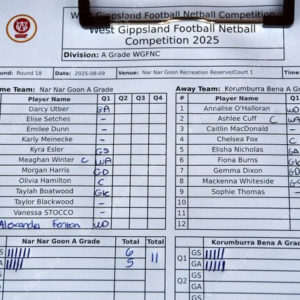 West Gippsland Football Netball Competition
West Gippsland Football Netball
Competition 2025
Division: A Grade WGFNC
Round: Round 18 Date: 2025-08-09 Venue: Nar Nar Goon Recreation Reserve/Court 1
Home Team: Nar Nar Goon A Grade Away Team: Korumburra Bena A Grade
Player Name Q1 Q2 Q3 Q4 Player Name Q1
Darcy Utber GA 1 Annalise O'Halloran WD
Elise Setches - 2 Ashlee Cuff C WA
Emilee Dunn - 3 Caitlin MacDonald -
Karly Meinecke - 4 Chelsea Fox C
Kyra Esler GS 5 Elisha Nicholas GA
Meaghan Winter C WA 6 Fiona Burns GK
Morgan Harris GD 7 Gemma Dixon GD
Olivia Hamilton C 8 Mackenna Whiteside GS
Taylah Boatwood GK 9 Sophie Thomas -
Taylor Blackwood - 10
Vanessa STOCCO - 11
Alexandra Fenton WD 12
Nar Nar Goon A Grade Total Total Korumburra Bena A Grade
GS 6 11 Q1 GS
GA 5 GA
GS Q2 GS